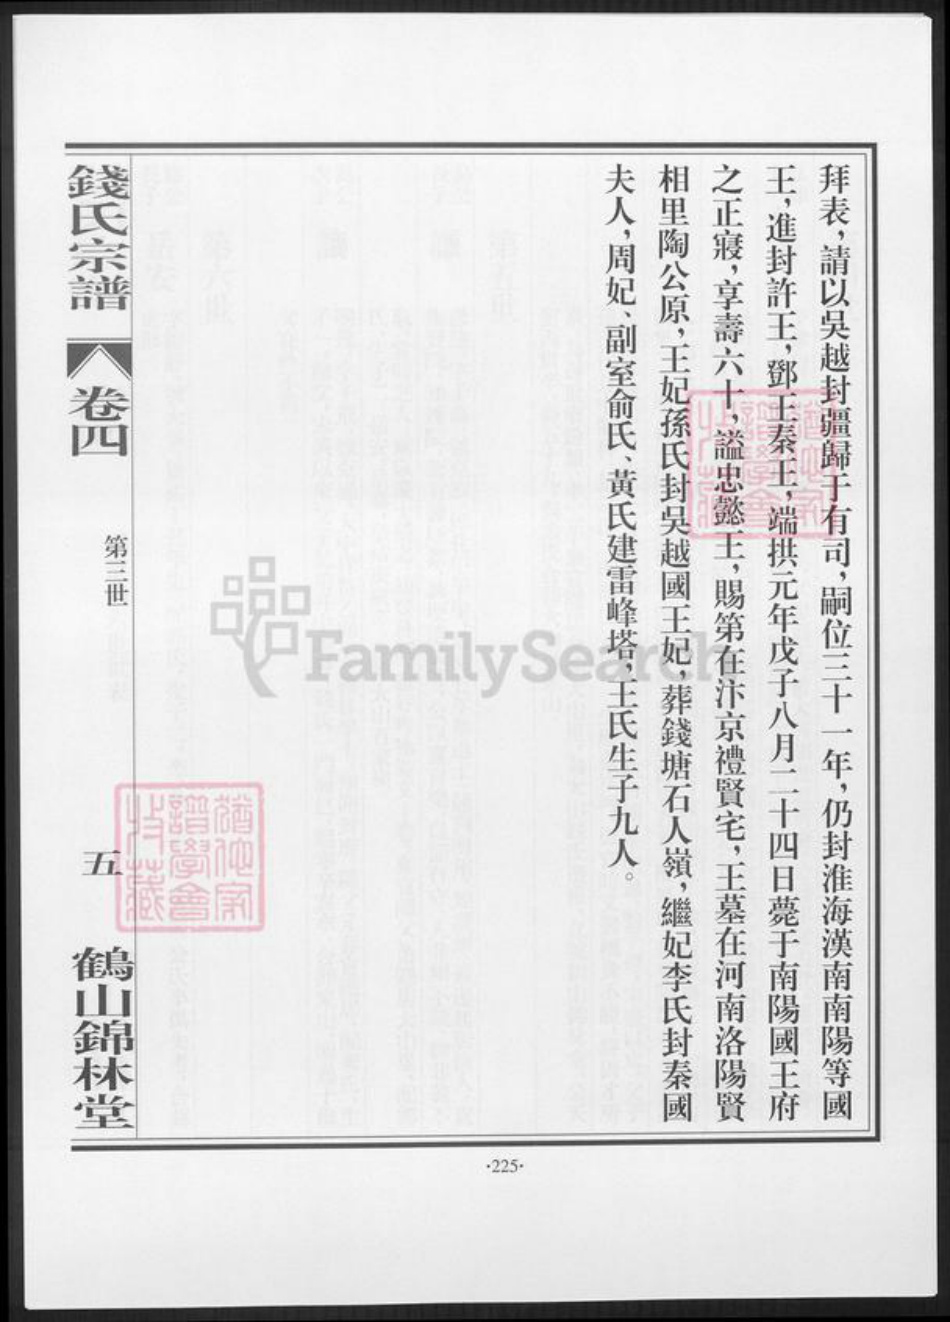 拜表，請以吳越封疆歸于有司，嗣位三十一年，仍封淮海漢南南陽等國
王，進封許王，鄧王秦王，端拱元年戊子八月二十四日薨于南陽國王府
之正寢，享壽六十，謚忠懿王，賜第在汴京禮賢宅，王墓在河南洛陽賢
相里陶公原，王妃孫氏封吳越國王妃，葬錢塘石人嶺，繼妃李氏封秦國
夫人，周妃、副室俞氏、黃氏建雷峰塔，王氏生子九人。
錢氏宗譜
卷四
第三世
五
鶴山錦林堂
·225·
FamilySearch
譜學會
收藏
譜學會
收藏